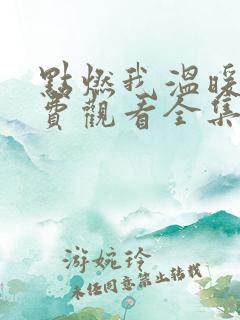 點燃我溫暖
費觀看全集
游婉玲
未经同意禁止转载